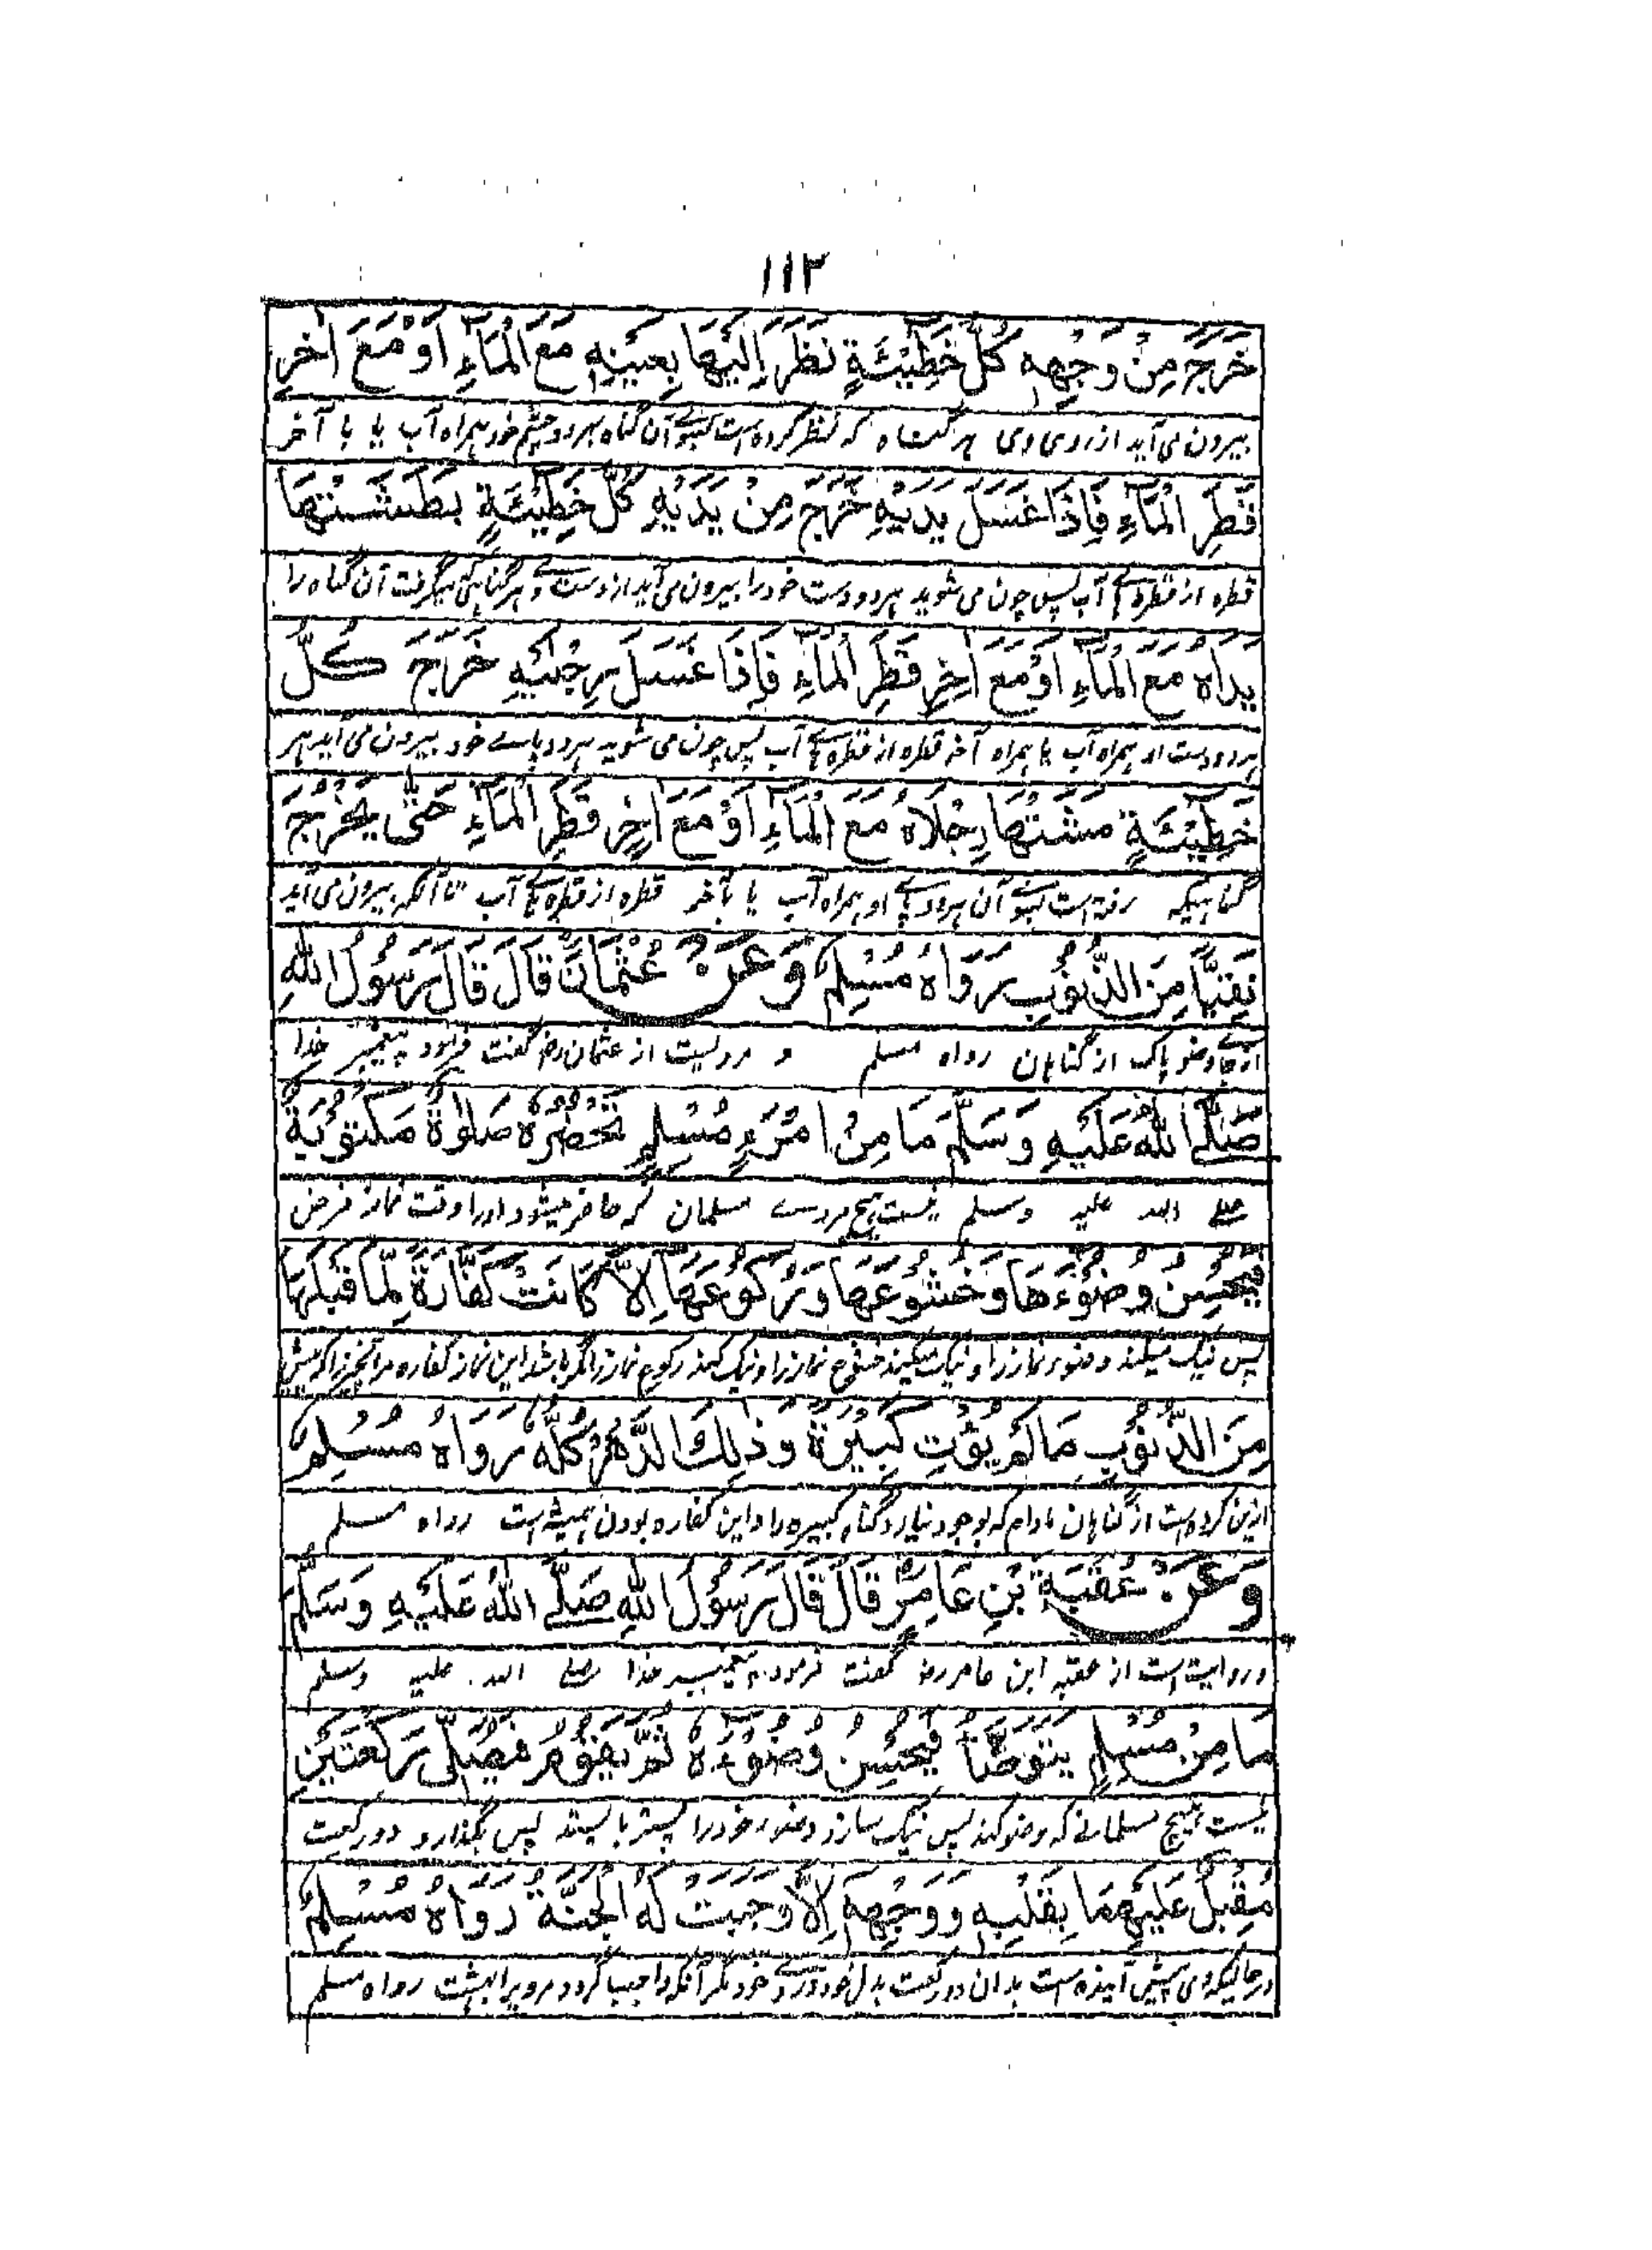 ۱۱۲
خَرَجَ مِنْ وَجْهِهٖ كُلُّ خَطِيْئَةٍ نَظَرَ اِلَيْهَا بِعَيْنِهٖ مَعَ الْمَآءِ اَوْ مَعَ اٰخِرِ
بیرون می آید از روی وی هر گناه که نظر کرده است بسوئے آن گناه بهر دو چشم خود همراه آب یا با آخر
قَطْرِ الْمَآءِ فَاِذَا غَسَلَ يَدَيْهِ خَرَجَ مِنْ يَدَيْهِ كُلُّ خَطِيْئَةٍ بَطَشَتْهَا
قطره از قطره هائے آب پس چون می شوید هر دو دست خود را بیرون می آید از دست وے هر گناهی که میگرفت آن گناه را
يَدَاهُ مَعَ الْمَآءِ اَوْ مَعَ اٰخِرِ قَطْرِ الْمَآءِ فَاِذَا غَسَلَ رِجْلَيْهِ خَرَجَ كُلُّ
هر دو دست او همراه آب یا همراه آخر قطره از قطره هائے آب پس چون می شوید هر دو پائے خود بیرون می آید هر
خَطِيْئَةٍ مَشَتْهَا رِجْلَاهُ مَعَ الْمَآءِ اَوْ مَعَ اٰخِرِ قَطْرِ الْمَآءِ حَتّٰى يَخْرُجَ
گناهیکه رفته است بسوئے آن هر دو پائے او همراه آب یا بآخر قطره از قطره هائے آب تا آنکه بیرون می آید
نَقِيًّا مِنَ الذُّنُوْبِ رَوَاهُ مُسْلِمٌ وَعَنْ عُثْمَانَ قَالَ قَالَ رَسُوْلُ اللهِ
از جائے وضو پاک از گناهان رواه مسلم و مرویست از عثمان رض گفت فرمود پیغمبر خدا
صَلَّى اللهُ عَلَيْهِ وَسَلَّمَ مَا مِنْ امْرَءٍ مُسْلِمٍ تَحْضُرُهُ صَلٰوةٌ مَكْتُوْبَةٌ
صلے الله علیه وسلم نیست هیچ مردے مسلمان که حاضر میشود او را وقت نماز فرض
فَيُحْسِنُ وُضُوْءَهَا وَخُشُوْعَهَا وَرُكُوْعَهَا اِلَّا كَانَتْ كَفَّارَةً لِمَا قَبْلَهَا
پس نیک میکند وضوء نماز را و نیک میکند خشوع نماز را و نیک کند رکوع نماز را مگر باشد این نماز کفاره مر آنچیز را که پیش
مِنَ الذُّنُوْبِ مَا لَمْ يُؤْتِ كَبِيْرَةً وَذٰلِكَ الدَّهْرَ كُلَّهُ رَوَاهُ مُسْلِمٌ
ازین کرده است از گناهان مادام که بوجود نیارد گناه کبیره را و این کفاره بودن همیشه است رواه مسلم
وَعَنْ عُقْبَةَ بْنِ عَامِرٍ قَالَ قَالَ رَسُوْلُ اللهِ صَلَّى اللهُ عَلَيْهِ وَسَلَّمَ
و روایت است از عقبه ابن عامر رض گفت فرمود پیغمبر خدا صلے الله علیه وسلم
مَا مِنْ مُسْلِمٍ يَتَوَضَّأُ فَيُحْسِنُ وُضُوْءَهُ ثُمَّ يَقُوْمُ فَيُصَلِّى رَكْعَتَيْنِ
نیست هیچ مسلمانے که وضو کند پس نیک سازد وضوء خود را پستر بایستد پس بگذارد دو رکعت
مُقْبِلٌ عَلَيْهِمَا بِقَلْبِهٖ وَوَجْهِهٖ اِلَّا وَجَبَتْ لَهُ الْجَنَّةُ رَوَاهُ مُسْلِمٌ
در حالیکه وی پیش آینده است بدان دو رکعت بدل خود و روئے خود مگر آنکه واجب گردد مر ویرا بهشت رواه مسلم